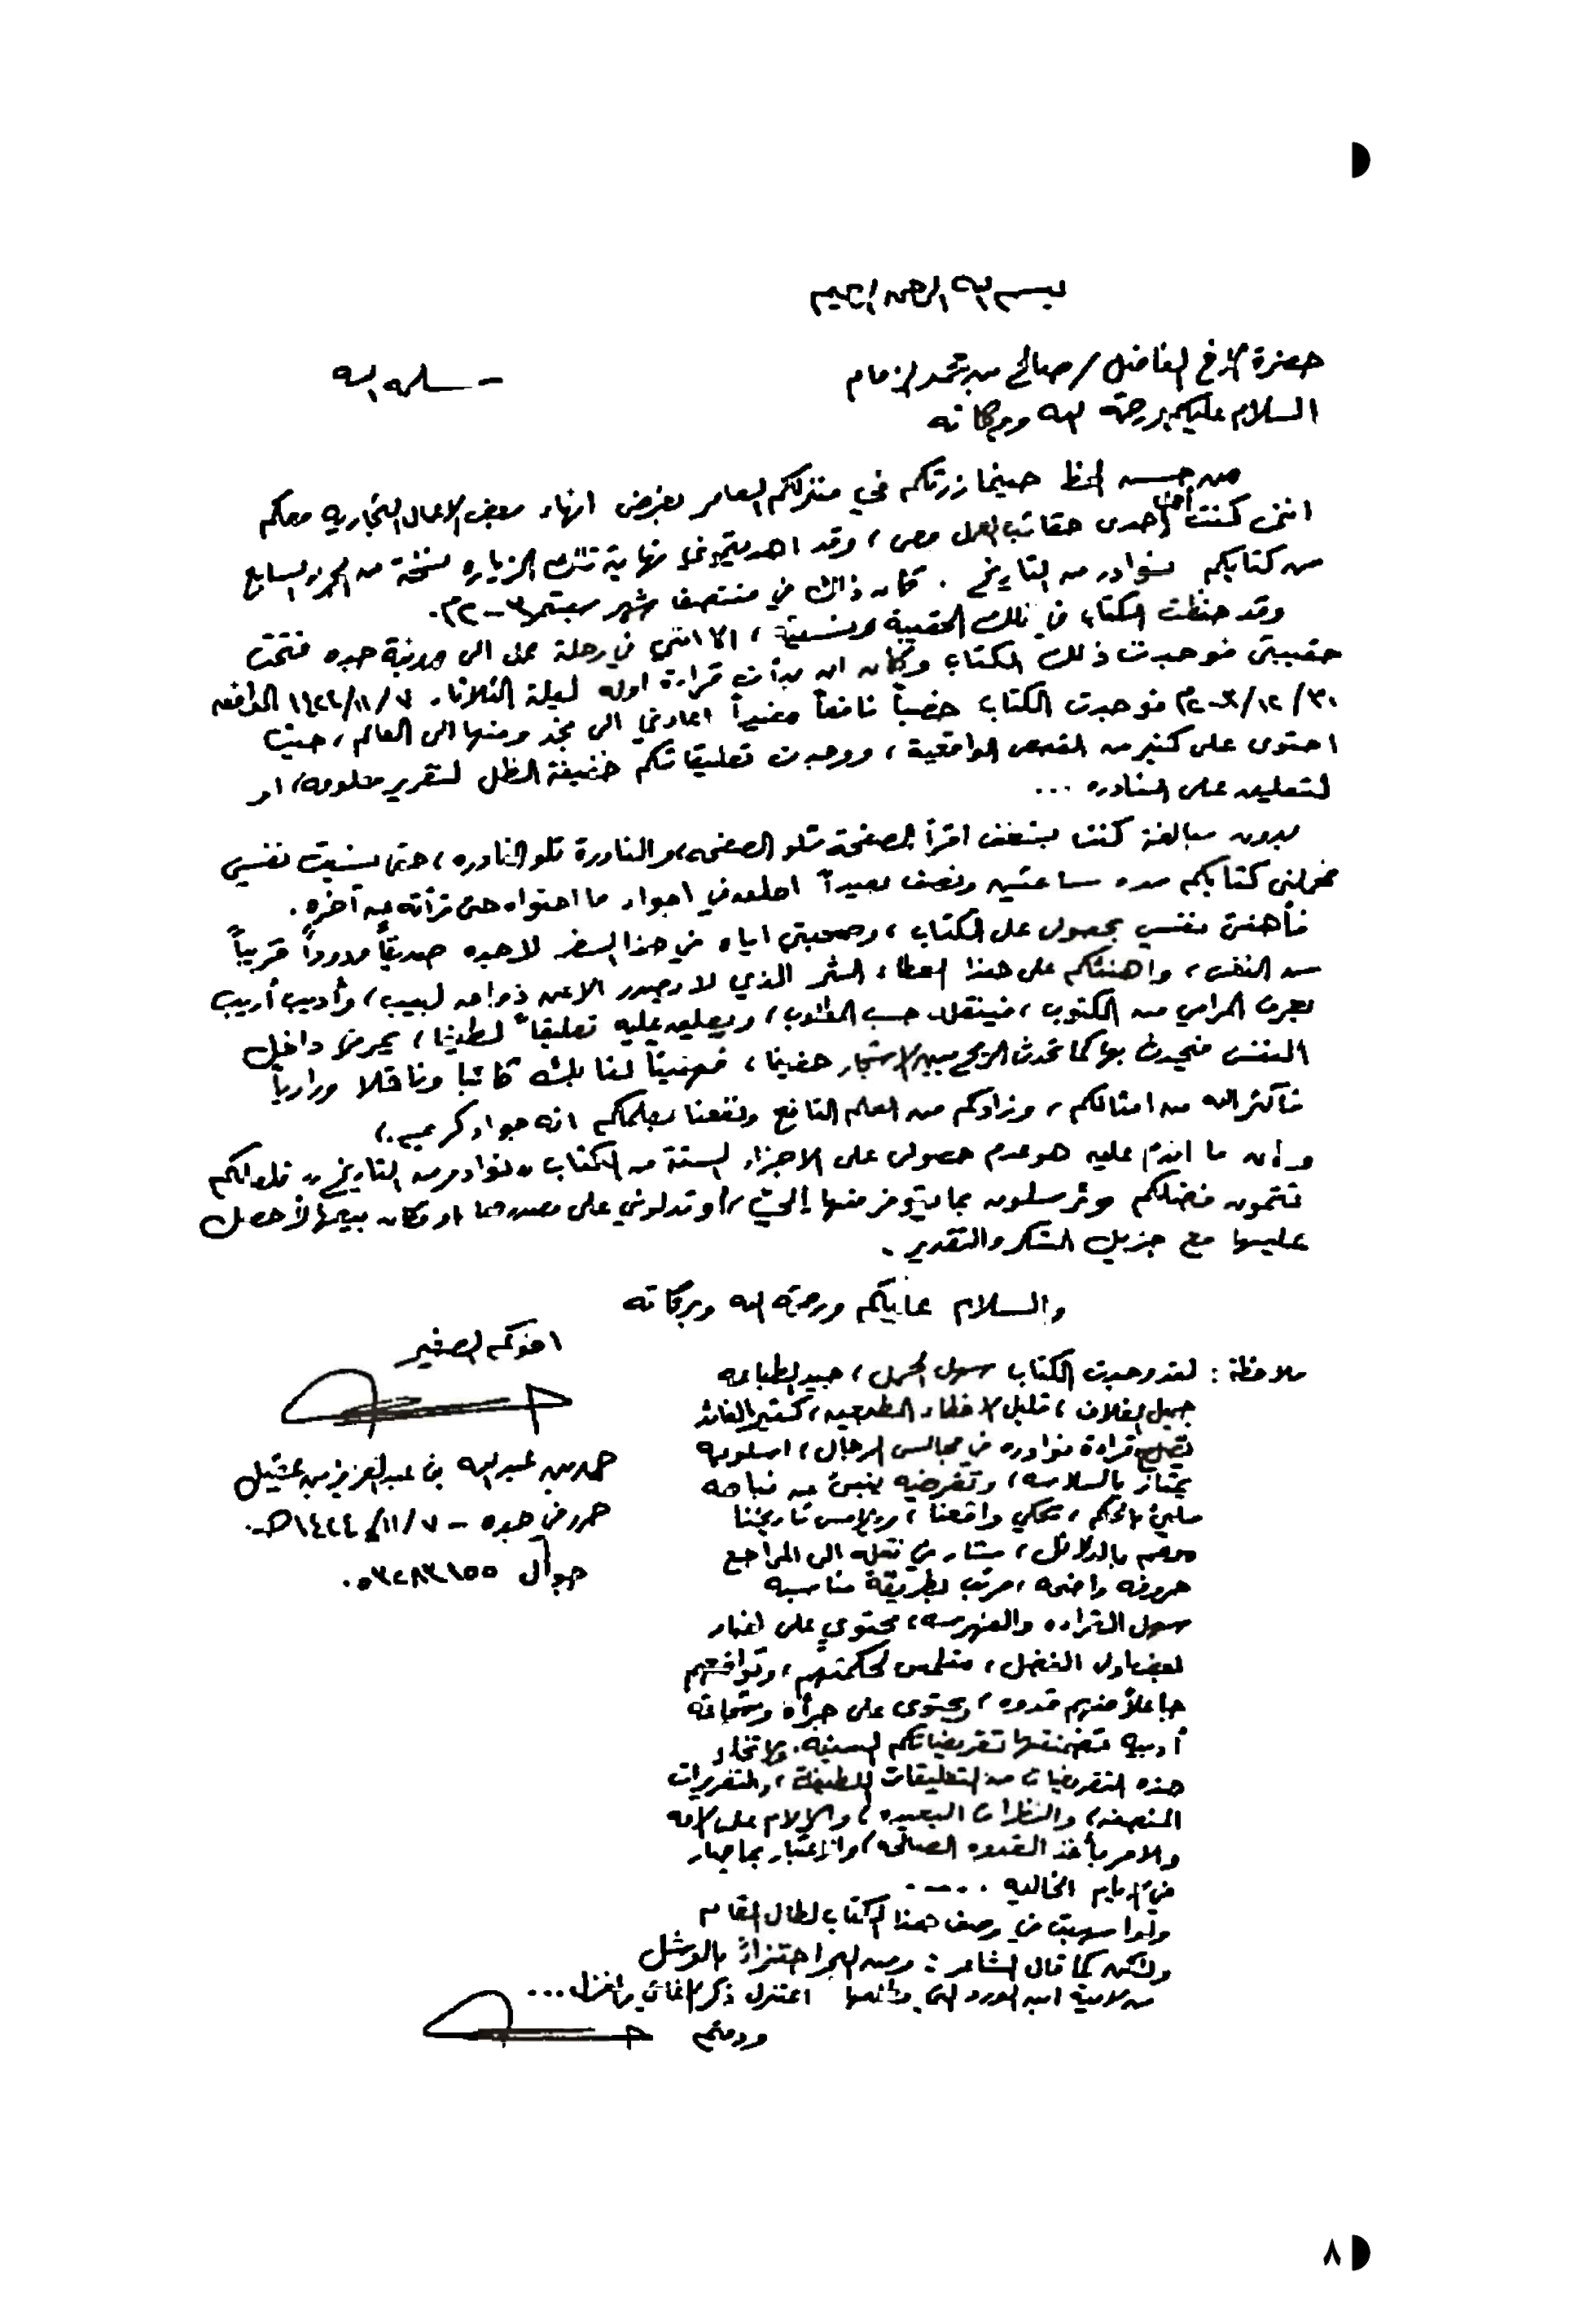 بسم الله الرحمن الرحيم
حضرة الأخ الفاضل / صالح بن محمد الزمام - سلمه الله
السلام عليكم ورحمة الله وبركاته
من حسن الحظ حينما زرتكم في منزلكم العامر بغرض انهاء بعض الاعمال التجاريه معكم
انني كنت أحمل احدى حقائب العمل معي ، وقد اهديتموني نهاية تلك الزياره نسخة من الجزء السابع
من كتابكم نوادر من التاريخ . كان ذلك في منتصف شهر سبتمبر ٢٠٠٣م.
وقد حفظت الكتاب في تلك الحقيبة ونسيته ، الا انني في رحلة عمل الى مدينة جده فتحت
حقيبتي فوجدت ذلك الكتاب وكان ان بدأت قراءة اوله ليلة الثلاثاء ١٤٢٤/١١/٧ الموافق
٢٠٠٣/١٢/٣٠م فوجدت الكتاب خصباً نافعاً مفيداً اعادني الى نجد ومنها الى العالم ، حيث
احتوى على كثير من القصص الواقعية ، ووجدت تعليقاتكم خفيفة الظل لتقرير معلومه / او
لتعليق على النادره ...
بدون مبالغة كنت بشغف اقرأ الصفحة تلو الصفحه ، والنادرة تلو النادره ، حتى نسيت نفسي
كتابكم مده ساعتين ونصف بعيداً احلق في اجواء ما احتواه حتى قرأته عن آخره .
فأهنئ نفسي بحصولي على الكتاب ، وصحبتي اياه في هذا السفر لاجده صديقاً ودوداً قريباً
من النفس ، واهنئكم على هذا العطاء الثر الذي لا يصدر الا عن ذواق لبيب ، وأديب أريب
يعرف المرامي من المكتوب ، فينتقل حسب المطلوب ، ويعلق عليه تعليقاً لطيفا ، يحرك داخل
النفس فيحدث بها كما تحدث الريح بين الاشجار حفيفا ، فهنيئاً لنا بك كاتبا وناقلا وراوياً
فأكثر الله من امثالكم ، وزادكم من العلم النافع ونفعنا بعلمكم انه جواد كريم ،
وان ما اندم عليه هو عدم حصولي على الاجزاء الستة من الكتاب " نوادر من التاريخ " فلعلكم
تتمون فضلكم وترسلون بما يتوفر منها إليّ / أو تدلوني على مصدرها او مكان بيعها لأحصل
عليها مع جزيل الشكر والتقدير .
والسلام عليكم ورحمة الله وبركاته
اخوكم الصغير
حمد بن عبدالله بن عبدالعزيز بن عقيل
حرر في جده - ١٤٢٤/١١/٧هـ
جوال
ملاحظة : لقد وجدت الكتاب سهل الحمل ، جيد الطباعه
جميل الغلاف ، قليل الاخطاء المطبعيه ، كثير الفائده
تصلح قراءة نوادره في مجالس الرجال ، اسلوبه
يمتاز بالسلاسه ، وتقريضه ينبئ عن نباهه
مليئ بالحكم ، يحكي واقعنا ، ويلامس تاريخنا
مدعم بالدلائل ، مشار في نقله الى المراجع
حروفه واضحه ، مرتب بطريقة مناسبه
سهل القراءه والفهرسه ، محتوي على اخبار
بعض اولي الفضل ، متلمس لحكمتهم ،
جاعلاً منهم قدوه ، ويحتوى على جرأة وشجاعة
أدبيه تضمنتها تقريضاتكم السنيه. ولا تخلو
هذه التقريضات من التعليقات اللطيفة ، والتقريرات
المنصفه ، والنظرات البعيده ، على الامه
والامر بأخذ القدوه الصالحه ، والاعتبار بما صار
في الايام الخاليه ....
ولو اسهبت في وصف هذا الكتاب لطال المقام
ولكن كما قال الشاعر : ومن البحر اجتزاءً بالوشل
من لامية ابن الورد التي مطلعها اعتزل ذكر الاغاني والغزل ...
ودمتم
٨